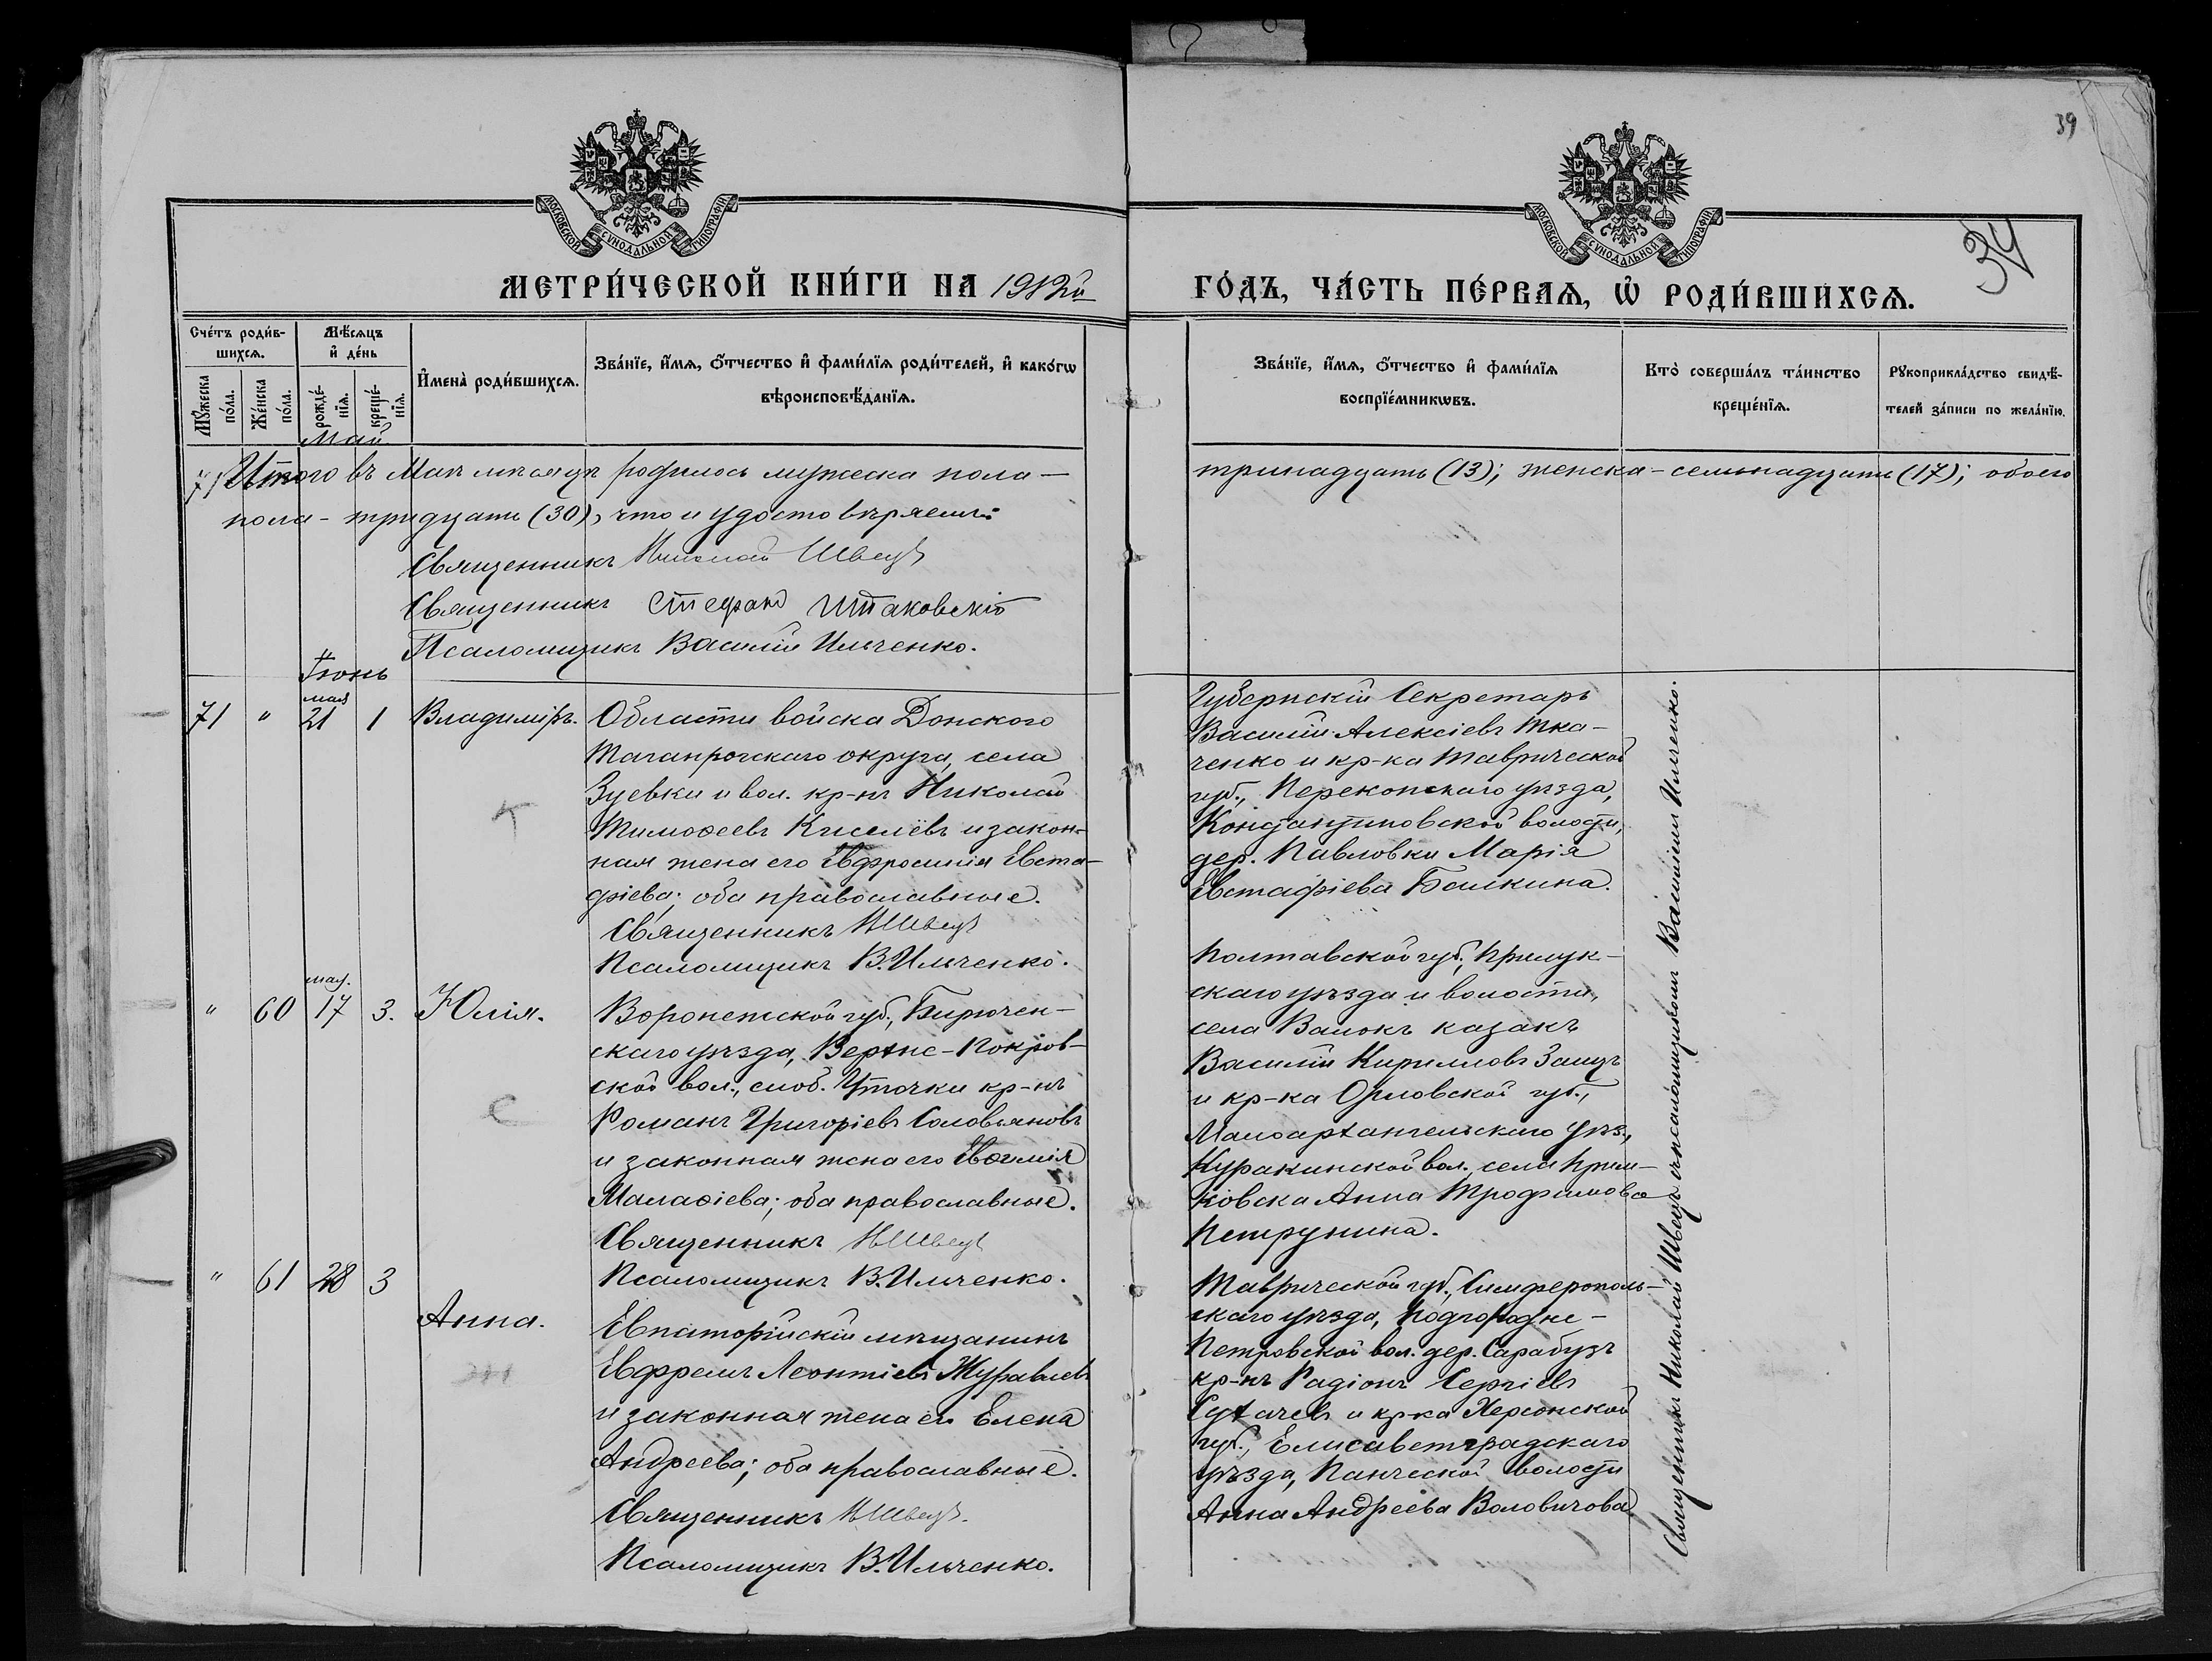 39
34
МОСКОВСКОЙ СѴНОДАЛЬНОЙ ТИПОГРАФІИ
МОСКОВСКОЙ СѴНОДАЛЬНОЙ ТИПОГРАФІИ
МЕТРИ́ЧЕСКОЙ КНИ́ГИ НА 1912й
ГО́ДЪ, ЧА́СТЬ ПЕ́РВАѦ, Ѡ҆ РОДИ́ВШИХСѦ.
Сче́тъ роди́в-
шихсѧ.
Мѣ́сѧцъ
и҆ де́нь
И҆мена̀ роди́вшихсѧ.
Зва́нїе, и҆́мѧ, ѻ҆́тчество и҆ фами́лїѧ роди́телей, и҆ како́гѡ
вѣроисповѣ́данїѧ.
Мꙋ́жеска
по́ла.
Же́нска
по́ла.
рожде́-
нїѧ.
креще́-
нїѧ.
Зва́нїе, и҆́мѧ, ѻ҆́тчество и҆ фами́лїѧ
воспрїе́мникѡвъ.
Кто̀ соверша́лъ та́инство
креще́нїѧ.
Рꙋкоприкла́дство свидѣ́-
телей за́писи по жела́нїю.
Май
71 Итого въ Маѣ мѣсяцѣ родилось мужеска пола —
тринадцать (13); женска — семьнадцать (17); обоего
пола — тридцать (30), что и удостовѣряемъ:
Священникъ Николай Швецъ
Священникъ Стефанъ
Псаломщикъ Василій Ильченко.
Іюнь
71 " мая 21 1 Владиміръ.
Области войска Донского
Таганрогскаго округа, села
Зуевки и вол. кр-нъ Николай
Тимоѳеевъ Киселёвъ и закон-
ная жена его Евфросинія Евста-
фіева; оба православные.
Священникъ НШвецъ
Псаломщикъ В. Ильченко.
Губернскій Секретарь
Василій Алексіевъ Тка-
ченко и кр-ка Таврической
губ., Перекопскаго уѣзда,
Константиновской волости,
дер. Павловки Марія
Евстафіева Балкина.
" 60 мая. 17 3. Юлія.
Воронежской губ., Бирючен-
скаго уѣзда, Верхне-Покров-
ской вол., слоб. Уточки кр-нъ
Романъ Григоріевъ Соловьяновъ
и законная жена его Евѳимія
Малаѳіева; оба православные.
Священникъ НШвецъ
Псаломщикъ В. Ильченко.
Полтавской губ., Прилук-
скаго уѣзда и волости,
села Валокъ казакъ
Василій Кирилловъ Заецъ
и кр-ка Орловской губ.,
Малоархангельскаго уѣз.,
Куракинской вол., села
Анна Трофимова
Петрунина.
" 61 28 3
Анна.
Евпаторійскій мѣщанинъ
Евфремъ Леонтіевъ Журавлевъ
и законная жена его Елена
Андреева; оба православные.
Священникъ НШвецъ.
Псаломщикъ В. Ильченко.
Таврической губ., Симферополь-
скаго уѣзда, Подгородне-
Петровской вол. дер. Сарабузъ
кр-нъ Радіонъ Сергіевъ
Сухачевъ и кр-ка Херсонской
губ., Елисаветградскаго
уѣзда, волости
Анна Андреева Воловичова.
Священникъ Николай Швецъ съ псаломщикомъ Василіемъ Ильченко.